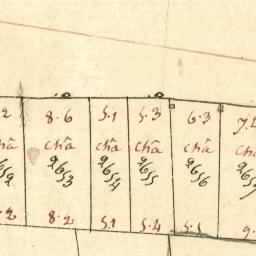 2 8.6 5.1 5.3 6.3 7.2
châ châ châ châ châ
2652 2653 2654 2655 2656 2657
.2 8.2 5.1 5.4 5.5 9.